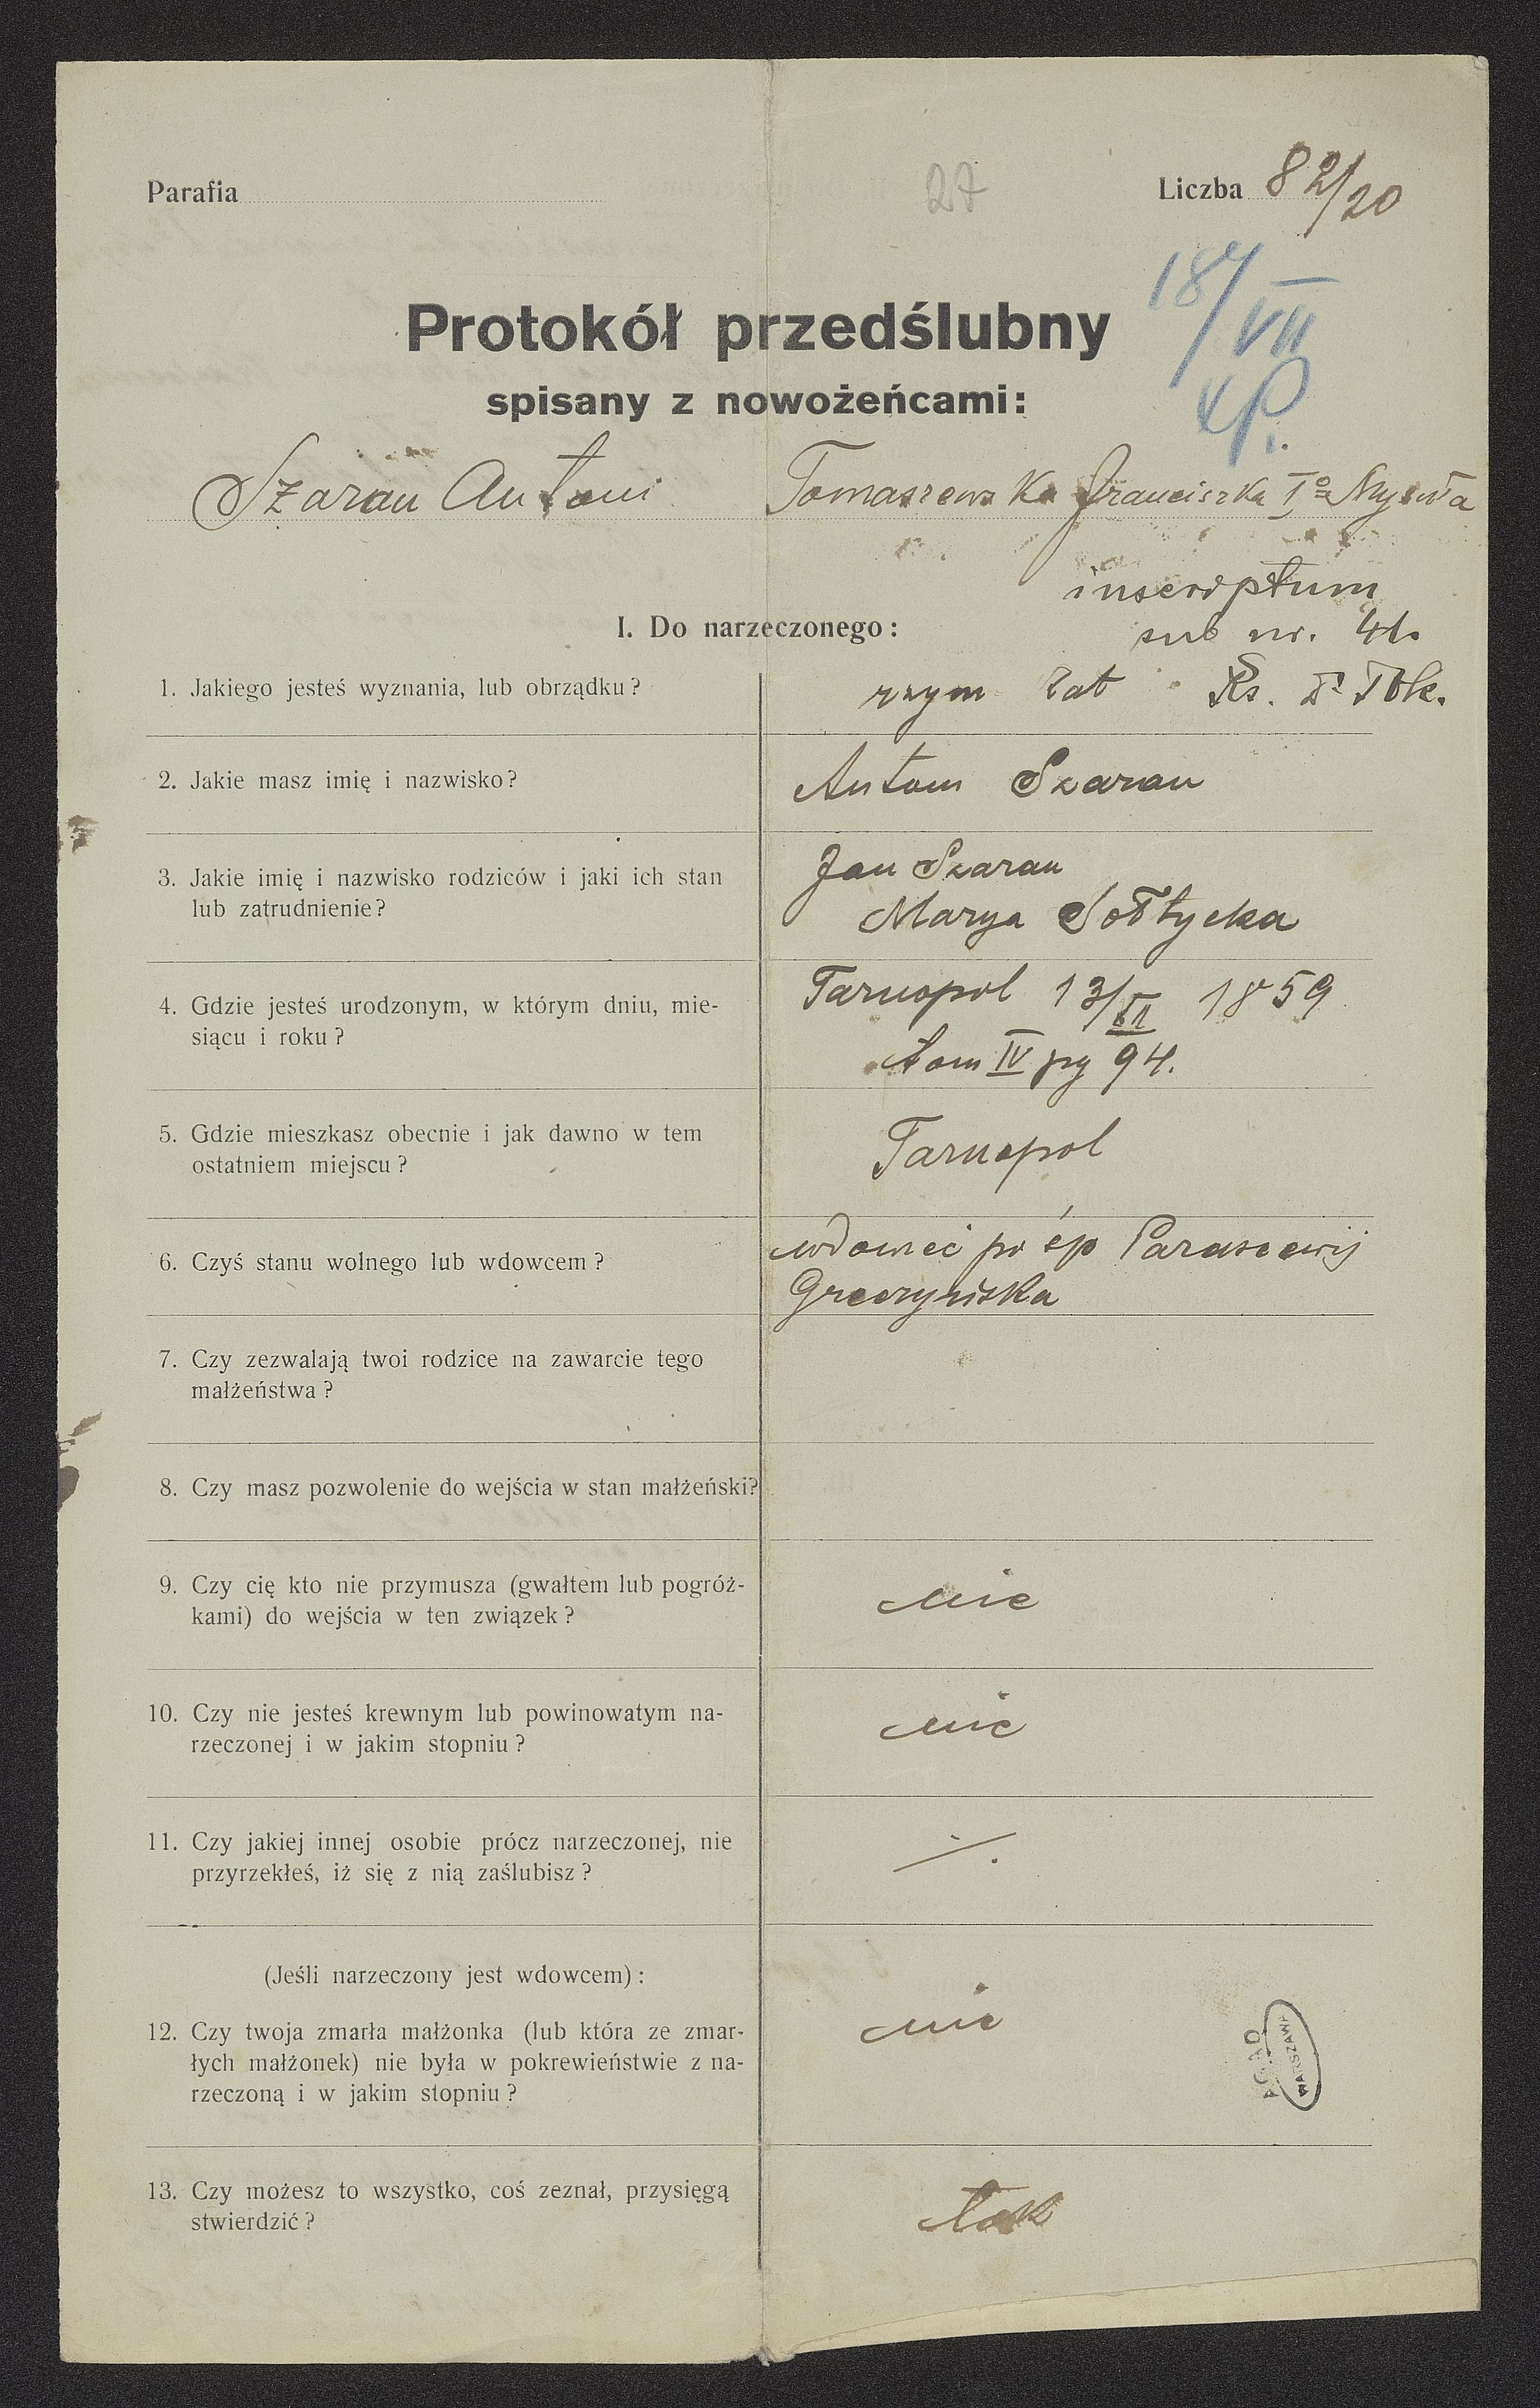 Parafia 27 Liczba 82/20
18/VII
Protokół przedślubny
spisany z nowożeńcami:
Szaran Antoni Tomaszewska Franciszka Iº
inscriptum
I. Do narzeczonego: sub nr. 41.
1. Jakiego jesteś wyznania, lub obrządku? rzym łat Ks.
2. Jakie masz imię i nazwisko? Antoni Szaran
3. Jakie imię i nazwisko rodziców i jaki ich stan
lub zatrudnienie?
Jan Szaran
Marya Sołtycka
4. Gdzie jesteś urodzonym, w którym dniu, mie-
siącu i roku?
Tarnopol 13/VI 1859
tom IV pg 94.
5. Gdzie mieszkasz obecnie i jak dawno w tem
ostatniem miejscu?
Tarnopol
6. Czyś stanu wolnego lub wdowcem?
wdowiec po śp Parascewij
Greczyńska
7. Czy zezwalają twoi rodzice na zawarcie tego
małżeństwa?
8. Czy masz pozwolenie do wejścia w stan małżeński?
9. Czy cię kto nie przymusza (gwałtem lub pogróż-
kami) do wejścia w ten związek?
nie
10. Czy nie jesteś krewnym lub powinowatym na-
rzeczonej i w jakim stopniu?
nie
11. Czy jakiej innej osobie prócz narzeczonej, nie
przyrzekłeś, iż się z nią zaślubisz?
./.
(Jeśli narzeczony jest wdowcem):
12. Czy twoja zmarła małżonka (lub która ze zmar-
łych małżonek) nie była w pokrewieństwie z na-
rzeczoną i w jakim stopniu?
nie
AGAD
WARSZAWA
13. Czy możesz to wszystko, coś zeznał, przysięgą
stwierdzić?
tak